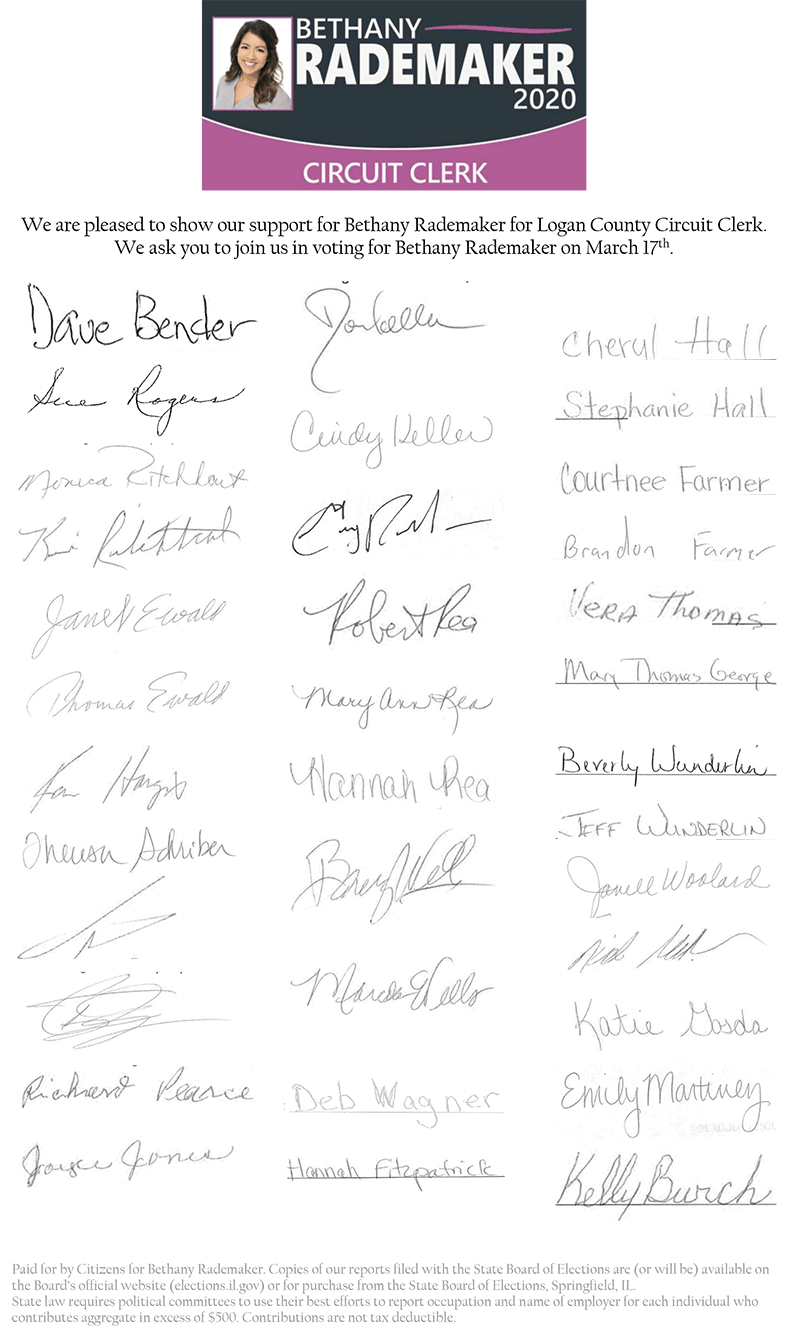 BETHANY
RADEMAKER
2020
CIRCUIT CLERK
We are pleased to show our support for Bethany Rademaker for Logan County Circuit Clerk.
We ask you to join us in voting for Bethany Rademaker on March 17th.
Dave Bender
Sue Rogers
Monica Ritchhart
Ritchhart
Janet Ewald
Thomas Ewald
Theresa Schriber
Richard Pearce
Joyce Jones
Don Keller
Cindy Keller
Robert Rea
Mary Ann Rea
Hannah Rea
Marcia Wells
Deb Wagner
Hannah Fitzpatrick
Cheryl Hall
Stephanie Hall
Courtnee Farmer
Brandon Farmer
VERA THOMAS
Mary Thomas George
Beverly Wunderlin
JEFF WUNDERLIN
Janell Woolard
Katie Gosda
Emily Martinez
Kelly Burch
Paid for by Citizens for Bethany Rademaker. Copies of our reports filed with the State Board of Elections are (or will be) available on
the Board's official website (elections.il.gov) or for purchase from the State Board of Elections, Springfield, IL.
State law requires political committees to use their best efforts to report occupation and name of employer for each individual who
contributes aggregate in excess of $500. Contributions are not tax deductible.